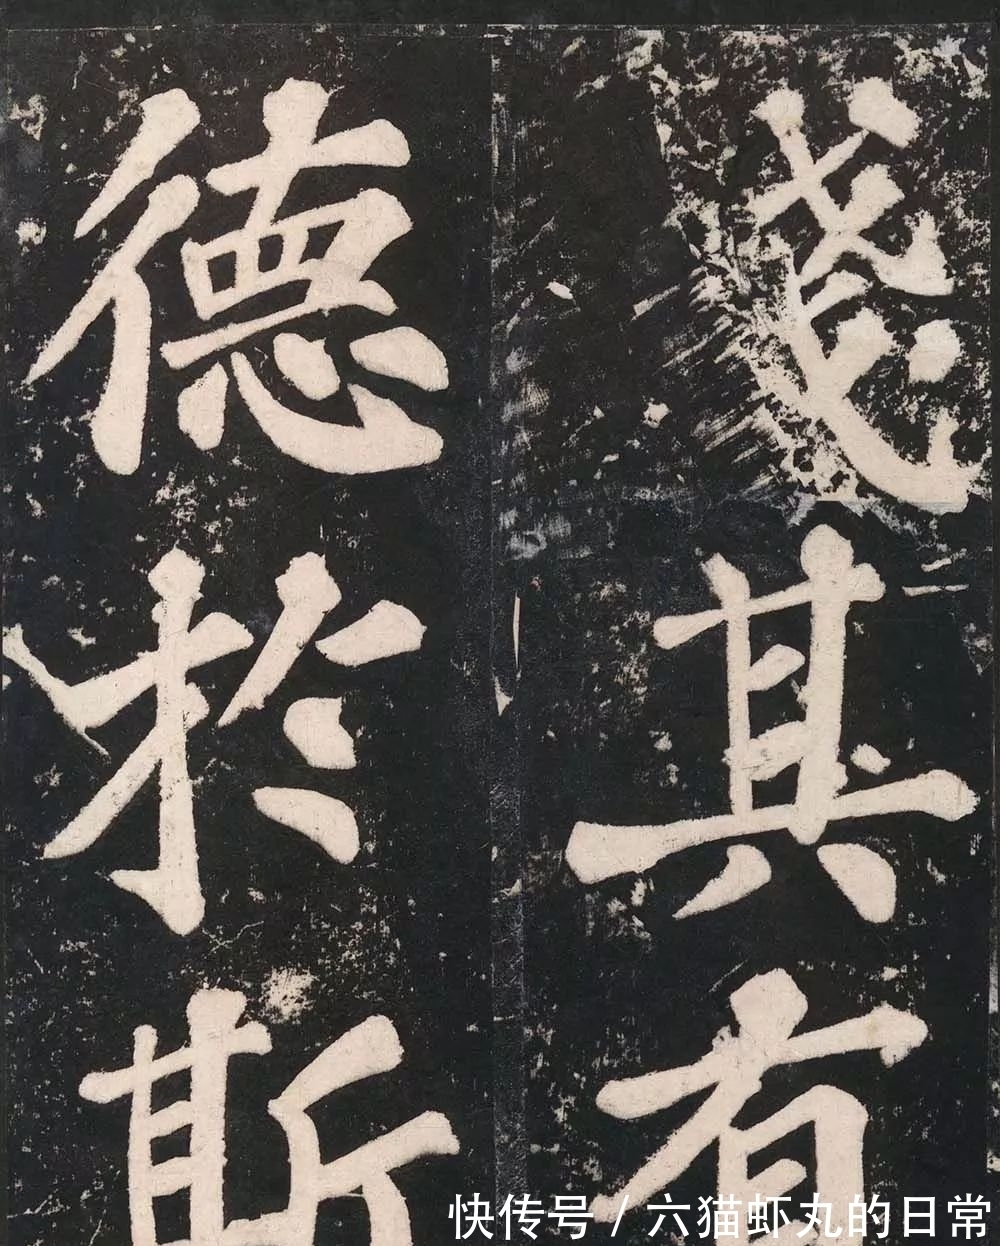 其有
德於斯
快传号 / 六猫虾丸的日常